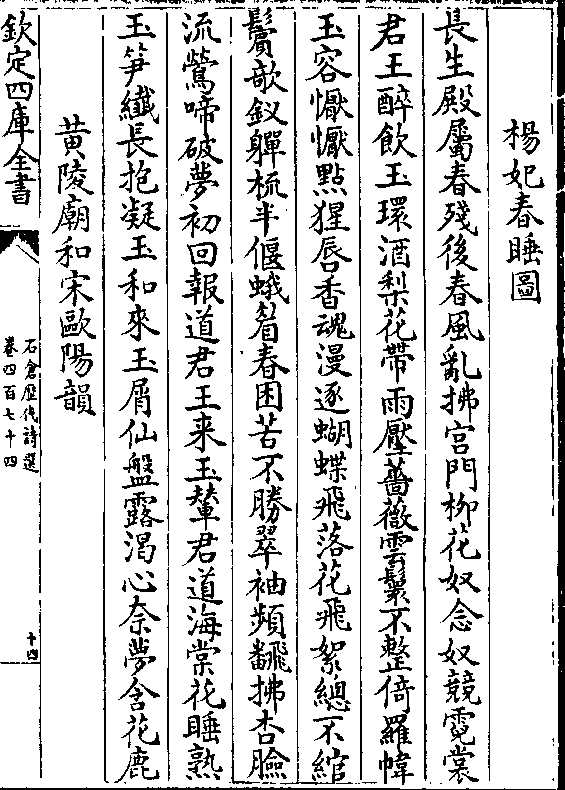 楊妃春睡圖
長生殿屬春殘後春風亂拂宮門柳花奴念奴競霓裳
君王醉飲玉環酒梨花帶雨壓薔薇雲鬟不整倚羅幃
玉容懨懨點猩唇香魂漫逐蝴蝶飛落花飛絮總不綰
鬢欹釵嚲梳半偃蛾眉春困苦不勝翠袖頻翻拂杏臉
流鶯啼破夢初回報道君王来玉輦君道海棠花睡熟
玉笋纖長抱凝玉和來玉屑仙盤露渴心奈夢含花鹿
黄陵廟和宋歐陽韻
欽定四庫全書
石倉歷代詩選
卷四百七十四
十四